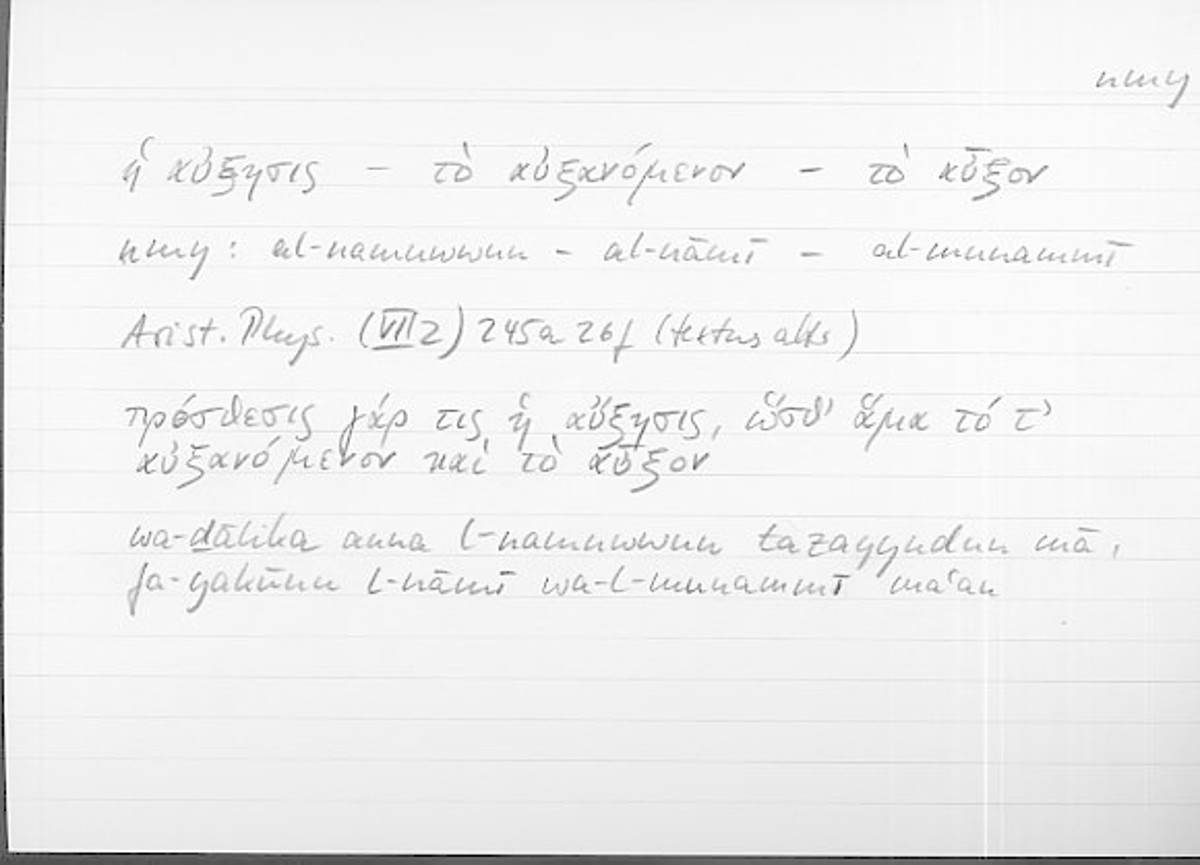 nmy
ἡ αὔξησις – τὸ αὐξανόμενον – τὸ αὖξον
nmy: al-namuwwu – al-nāmī – al-munammī
Arist. Phys. (VII 2) 245a 26f (textus alt.)
πρόσθεσις γάρ τις ἡ αὔξησις, ὥσθ' ἅμα τό τ'
αὐξανόμενον καὶ τὸ αὖξον
wa-ḏālika anna l-namuwwu tazayyudun mā,
fa-yakūnu l-nāmī wa-l-munammī maʿan